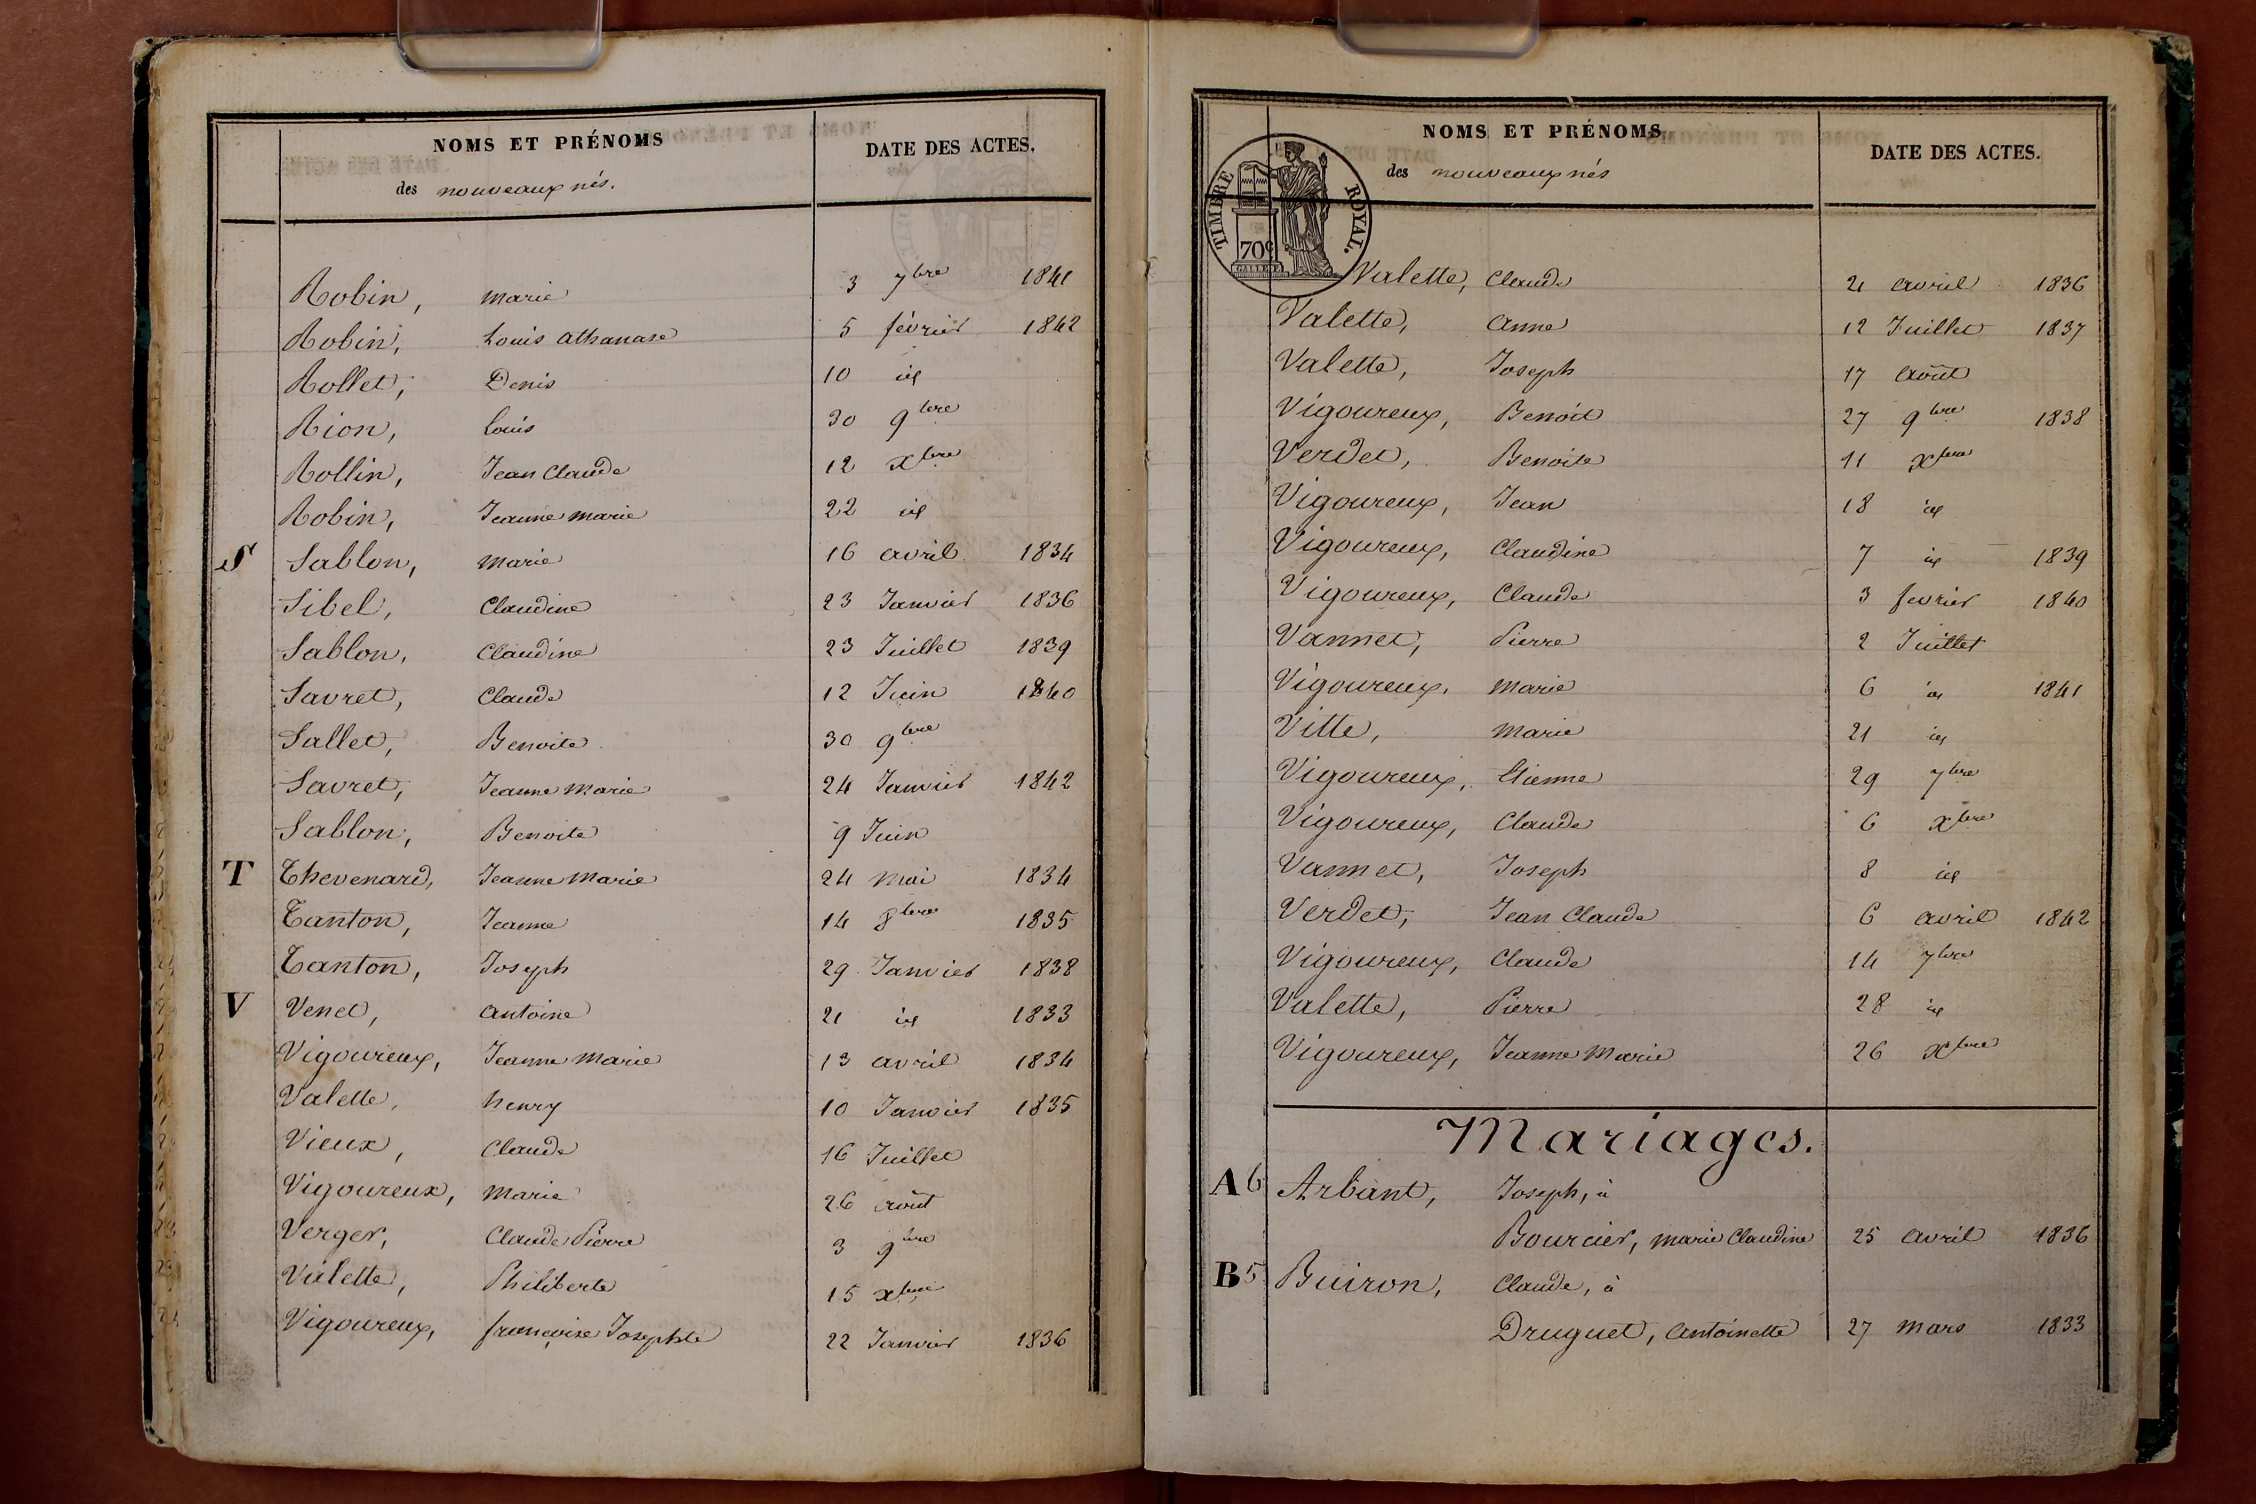 NOMS ET PRÉNOMS
DATE DES ACTES.
des nouveaux nés.
Robin, Marie 3 7bre 1841
Robin, Louis Athanase 5 février 1842
Rollet, Denis 10 id
Rion, Louis 30 9bre
Rollin, Jean Claude 12 xbre
Robin, Jeanne Marie 22 id
S Sablon, Marie 16 avril 1834
Sibel, Claudine 23 Janvier 1836
Sablon, Claudine 23 Juillet 1839
Savret, Claude 12 Juin 1840
Sallet, Benoite 30 9bre
Savret, Jeanne Marie 24 Janvier 1842
Sablon, Benoite 9 Juin
T Thevenard, Jeanne Marie 24 Mai 1834
Tanton, Jeanne 14 8bre 1835
Tanton, Joseph 29 Janvier 1838
V Venet, Antoine 21 id 1833
Vigoureux, Jeanne Marie 13 avril 1834
Valette, henry 10 Janvier 1835
Vieux, Claude 16 Juillet
Vigoureux, Marie 26 août
Verger, Claude Pierre 3 9bre
Valette, Philiberte 15 xbre
Vigoureux, françoise Josephte 22 Janvier 1836
NOMS ET PRÉNOMS
DATE DES ACTES.
des nouveaux nés
TIMBRE ROYAL.
70c
Valette, Claude 21 avril 1836
Valette, Anne 12 Juillet 1837
Valette, Joseph 17 août
Vigoureux, Benoit 27 9bre 1838
Verdet, Benoite 11 xbre
Vigoureux, Jean 18 id
Vigoureux, Claudine 7 id 1839
Vigoureux, Claude 3 fevrier 1840
Vannet, Pierre 2 Juillet
Vigoureux, Marie 6 id 1841
Vitte, Marie 21 id
Vigoureux, Etienne 29 7bre
Vigoureux, Claude 6 xbre
Vannet, Joseph 8 id
Verdet, Jean Claude 6 avril 1842
Vigoureux, Claude 14 7bre
Valette, Pierre 28 id
Vigoureux, Jeanne Marie 26 xbre
Mariages.
A 6 Arbant, Joseph, à
Bourcier, Marie Claudine 25 avril 1836
B 5 Buiron, Claude, à
Druguet, Antoinette 27 Mars 1833